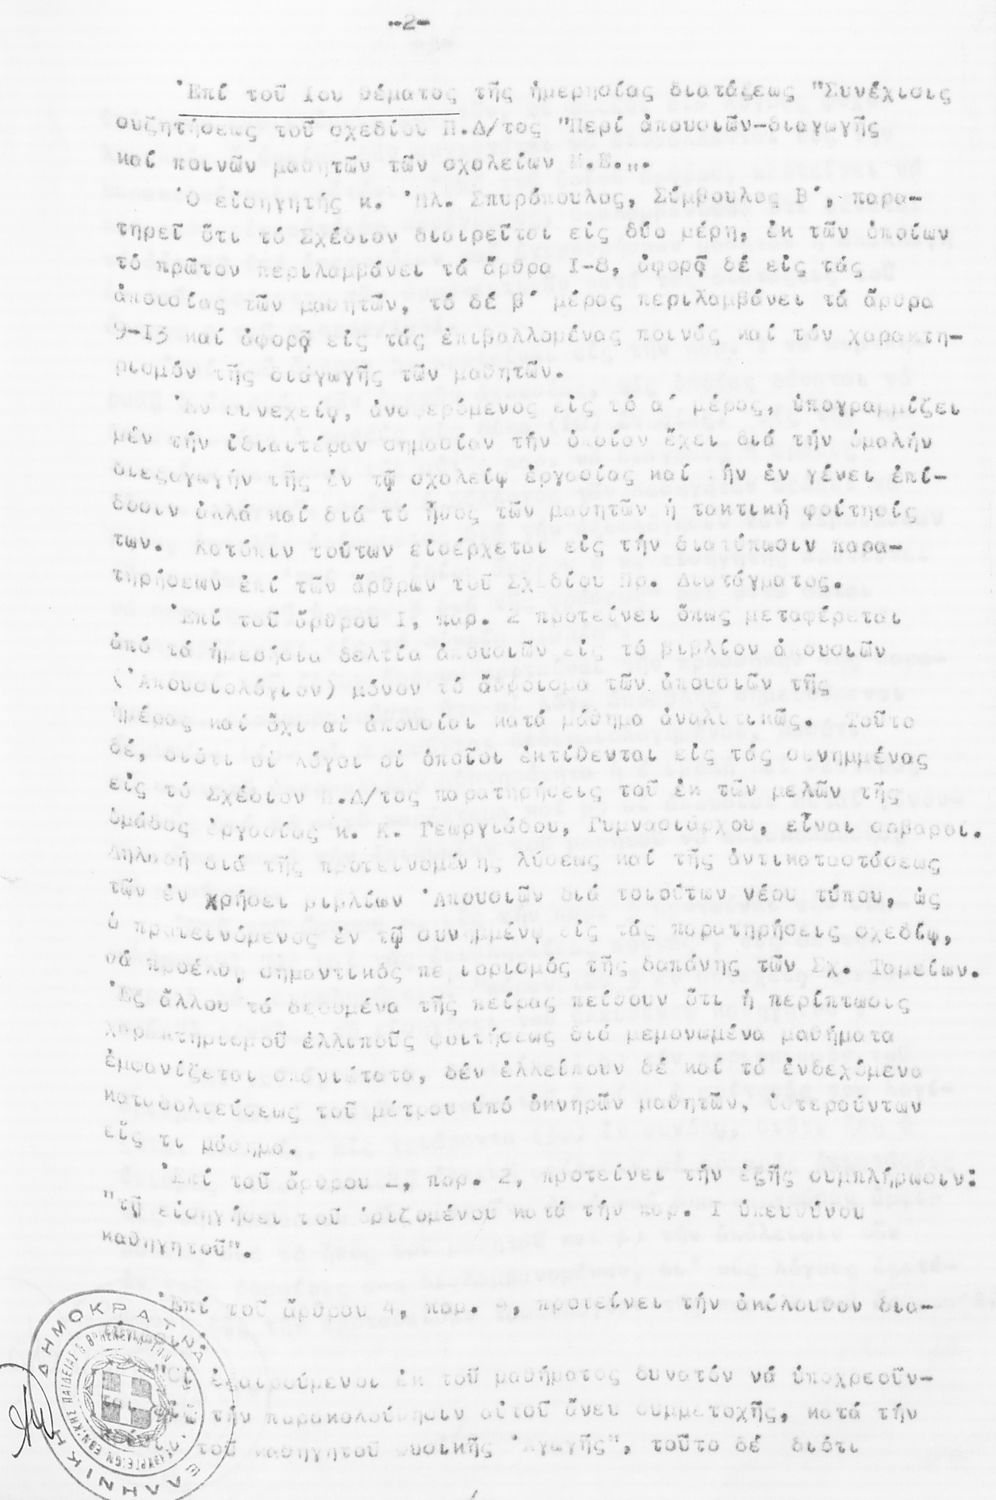 -2-
Ἐπί τοῦ Ιου θέματος τῆς ἡμερησίας διατάξεως "Συνέχισις
συζητήσεως τοῦ σχεδίου Π.Δ/τος "Περί ἀπουσιῶν-διαγωγῆς
καί ποινῶν μαθητῶν τῶν σχολείων Μ.Ε.".
Ὁ εἰσηγητής κ. Ἠλ. Σπυρόπουλος, Σύμβουλος Β΄, παρα-
τηρεῖ ὅτι τό Σχέδιον διαιρεῖται εἰς δύο μέρη, ἐκ τῶν ὁποίων
τό πρῶτον περιλαμβάνει τά ἄρθρα Ι-8, ἀφορᾷ δέ εἰς τάς
ἀπουσίας τῶν μαθητῶν, τό δέ β΄ μέρος περιλαμβάνει τά ἄρθρα
9-Ι3 καί ἀφορᾷ εἰς τάς ἐπιβαλλομένας ποινάς καί τόν χαρακτη-
ρισμόν τῆς διαγωγῆς τῶν μαθητῶν.
Ἐν συνεχείᾳ, ἀναφερόμενος εἰς τό α΄ μέρος, ὑπογραμμίζει
μέν τήν ἰδιαιτέραν σημασίαν τήν ὁποίαν ἔχει διά τήν ὁμαλήν
διεξαγωγήν τῆς ἐν τῷ σχολείῳ ἐργασίας καί τήν ἐν γένει ἐπί-
δοσιν ἀλλά καί διά τό ἦθος τῶν μαθητῶν ἡ τακτική φοίτησίς
των. Κατόπιν τούτων εἰσέρχεται εἰς τήν διατύπωσιν παρα-
τηρήσεων ἐπί τῶν ἄρθρων τοῦ Σχεδίου Πρ. Διατάγματος.
Ἐπί τοῦ ἄρθρου Ι, παρ. 2 προτείνει ὅπως μεταφέρεται
ἀπό τά ἡμερήσια δελτία ἀπουσιῶν εἰς τό βιβλίον ἀπουσιῶν
(Ἀπουσιολόγιον) μόνον τό ἄθροισμα τῶν ἀπουσιῶν τῆς
ἡμέρας καί ὄχι αἱ ἀπουσίαι κατά μάθημα ἀναλυτικῶς. Τοῦτο
δέ, διότι οἱ λόγοι οἱ ὁποῖοι ἐκτίθενται εἰς τάς συνημμένας
εἰς τό Σχέδιον Π.Δ/τος παρατηρήσεις τοῦ ἐκ τῶν μελῶν τῆς
ὁμάδος ἐργασίας κ. Κ. Γεωργιάδου, Γυμνασιάρχου, εἶναι σοβαροί.
Δηλαδή διά τῆς προτεινομένης λύσεως καί τῆς ἀντικαταστάσεως
τῶν ἐν χρήσει βιβλίων Ἀπουσιῶν διά τοιούτων νέου τύπου, ὡς
ὁ προτεινόμενος ἐν τῷ συνημμένῳ εἰς τάς παρατηρήσεις σχεδίῳ,
νά προέλθῃ σημαντικός περιορισμός τῆς δαπάνης τῶν Σχ. Ταμείων.
Ἐξ ἄλλου τά δεδομένα τῆς πείρας πείθουν ὅτι ἡ περίπτωσις
χαρακτηρισμοῦ ἐλλιποῦς φοιτήσεως διά μεμονωμένα μαθήματα
ἐμφανίζεται σπανιώτατα, δέν ἐλλείπουν δέ καί τά ἐνδεχόμενα
καταδολιεύσεως τοῦ μέτρου ὑπό ὀκνηρῶν μαθητῶν, ὑστερούντων
εἴς τι μάθημα.
Ἐπί τοῦ ἄρθρου 2, παρ. 2, προτείνει τήν ἑξῆς συμπλήρωσιν:
"τῇ εἰσηγήσει τοῦ ὁριζομένου κατά τήν παρ. Ι ὑπευθύνου
καθηγητοῦ".
Ἐπί τοῦ ἄρθρου 4, παρ. 4, προτείνει τήν ἀκόλουθον δια-
Οἱ ἐξαιρούμενοι ἐκ τοῦ μαθήματος δυνατόν νά ὑποχρεοῦν-
τήν παρακολούθησιν αὐτοῦ ἄνευ συμμετοχῆς, κατά τήν
τοῦ καθηγητοῦ Φυσικῆς Ἀγωγῆς", τοῦτο δέ διότι
ΕΛΛΗΝΙΚΗ ΔΗΜΟΚΡΑΤΙΑ